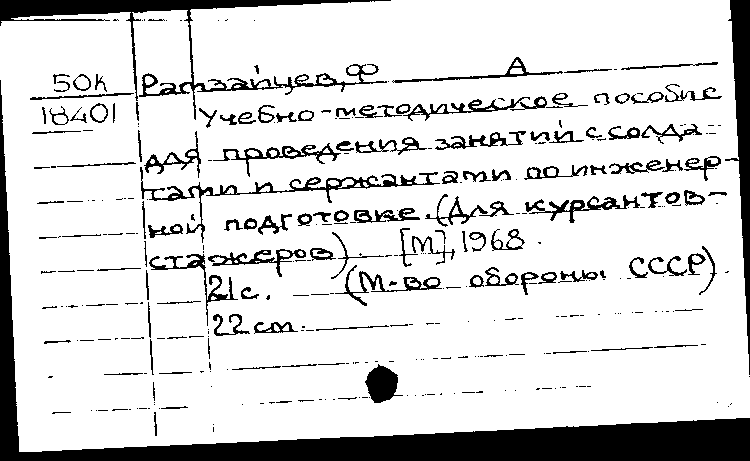 50К Ратзайцев, Ф А
18401 Учебно-методическое пособие
для проведения занятий с солда-
тами и сержантами по инженер-
ной подготовке. (Для курсантов-
стажеров). [М], 1968.
21с. (М-во обороны СССР).
22 см.